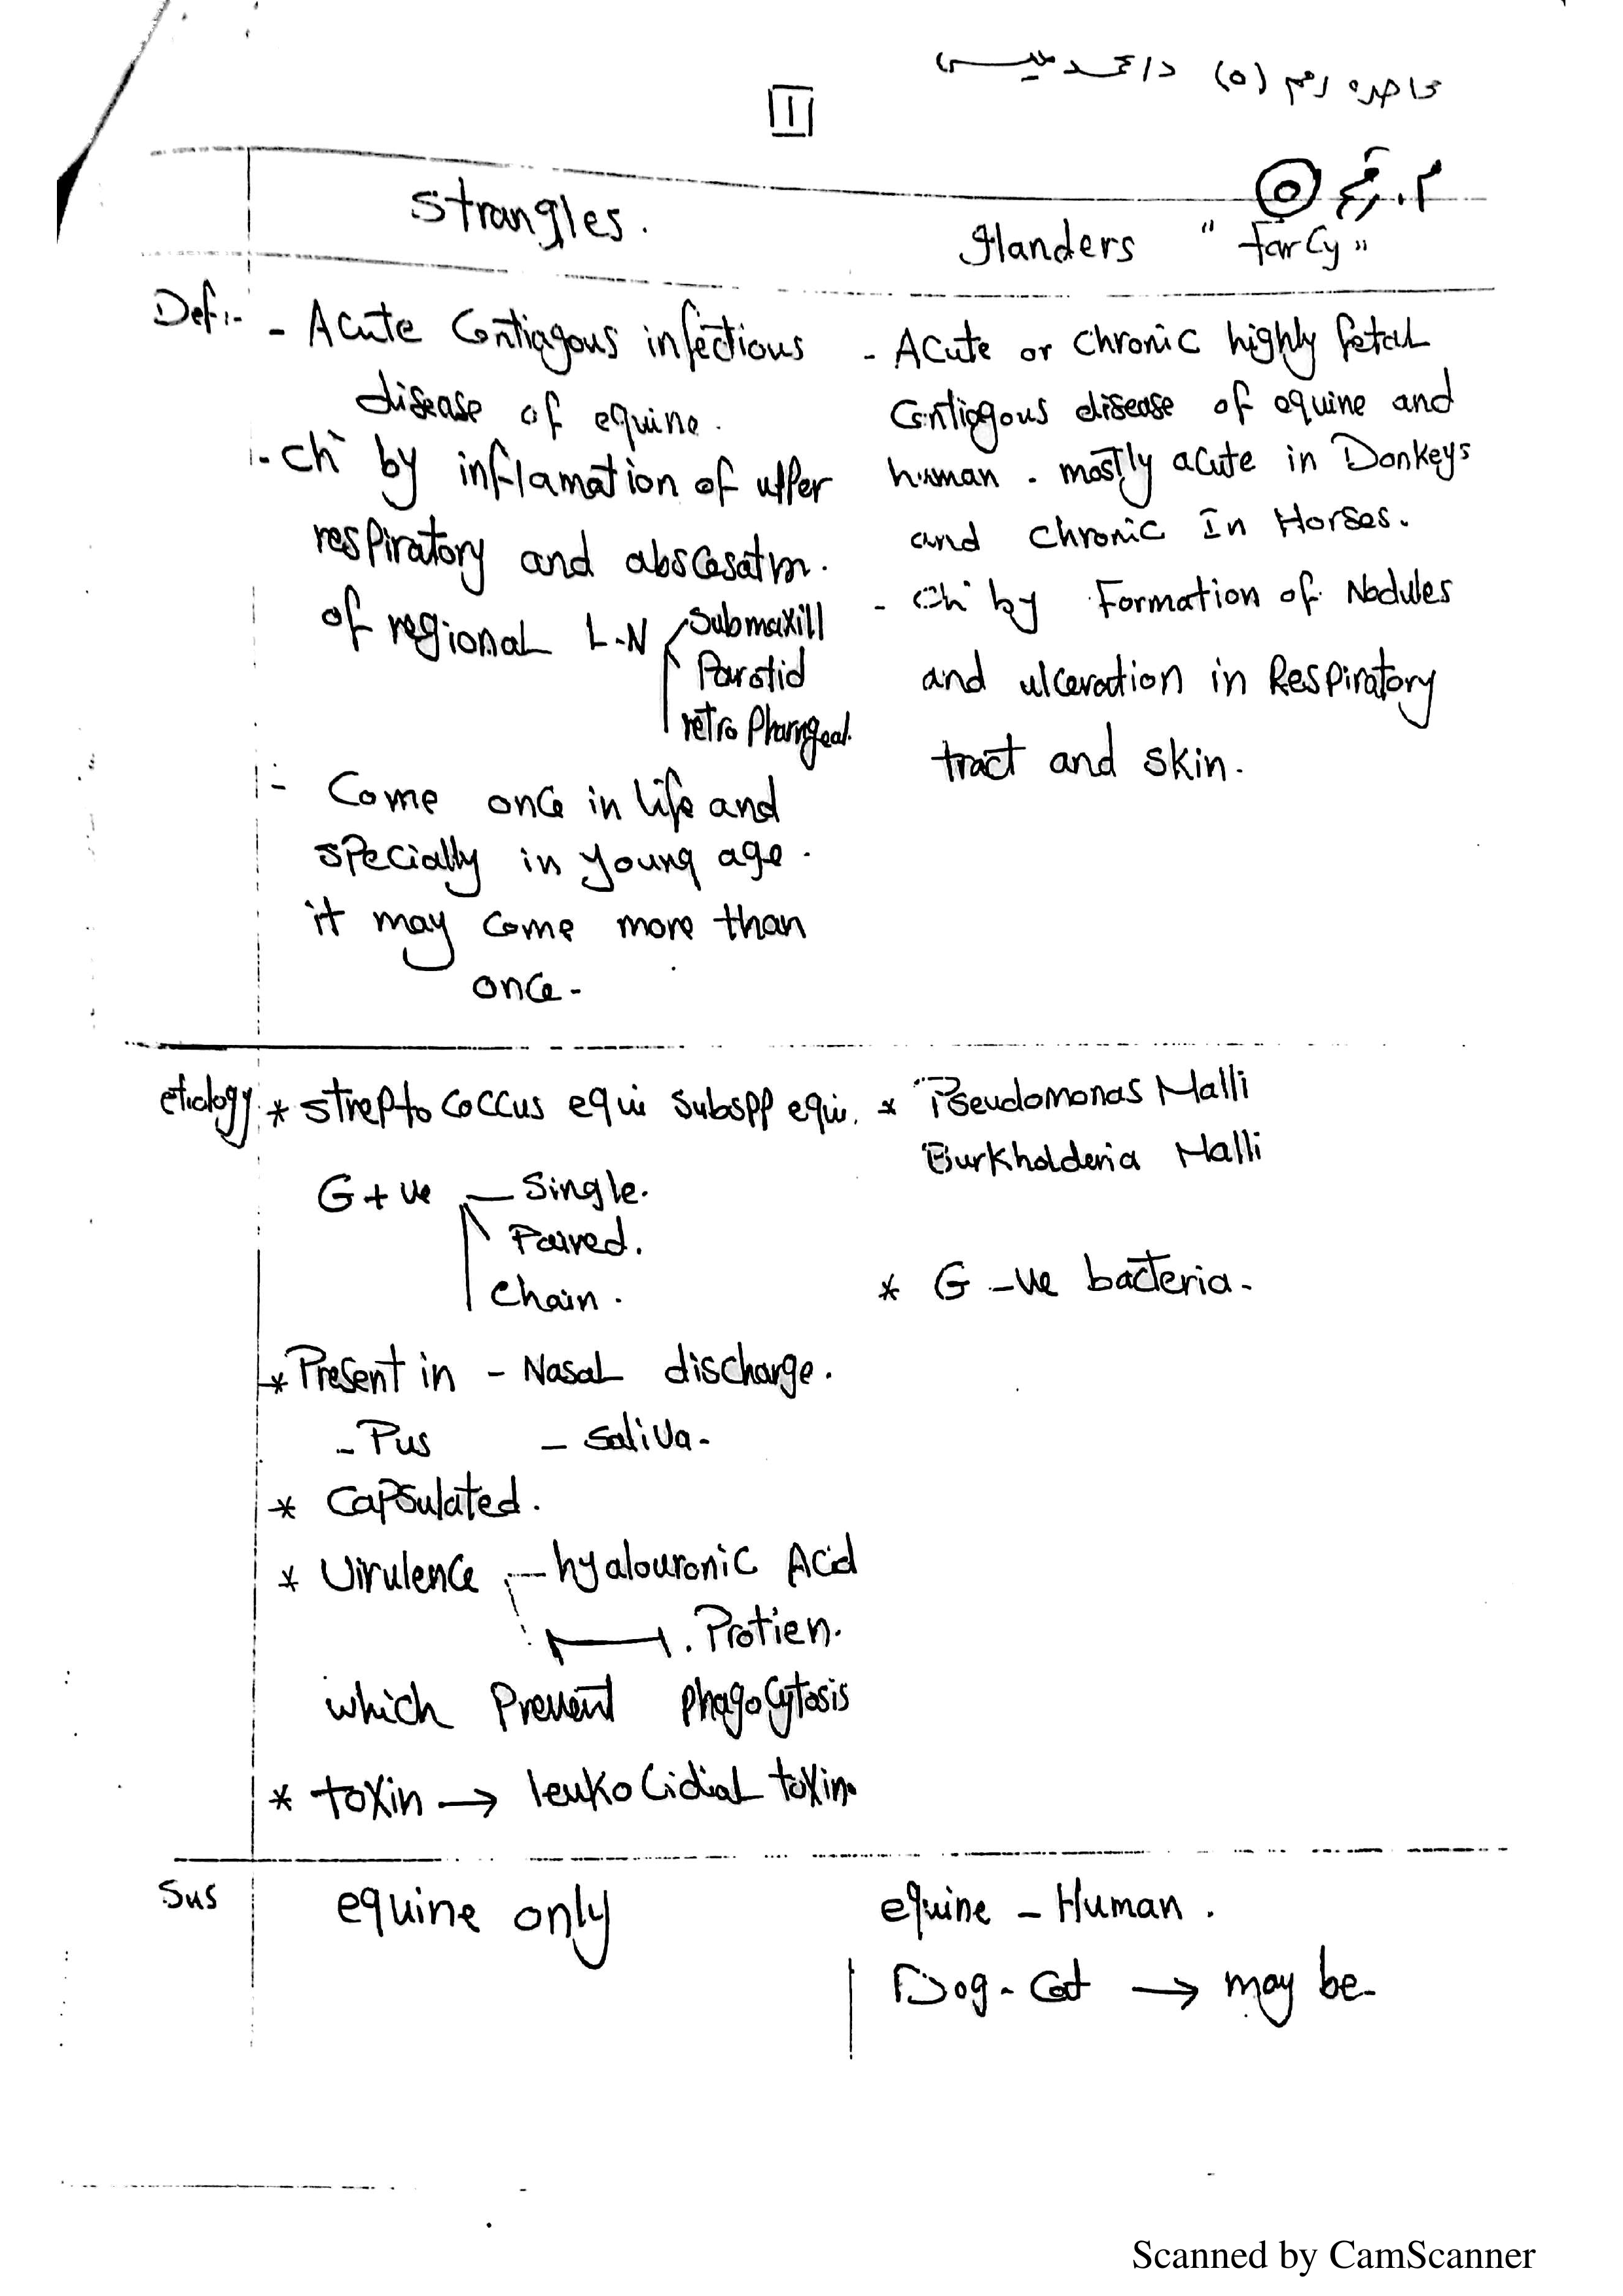 محاضرة رقم (٥) د/محمد عيسى
1
م. رقم ٥
Strangles.
Glanders " farcy "
Def:- - Acute Contiagous infectious
disease of equine.
- Ch by inflamation of upper
respiratory and abscesatin.
of regional L.N Submaxill
Parotid
retro Pharngeal.
- Come once in life and
specially in young age.
it may come more than
once-
- Acute or chronic highly fetal
Contiogous disease of equine and
human. mostly acute in Donkeys
and chronic In Horses.
- Ch by Formation of Nodules
and ulceration in Respiratory
tract and skin.
etiology * strepto coccus equi subspp equi.
G +ve - Single.
Paired.
Chain.
* Present in - Nasal discharge.
- Pus - saliva-
* Capsulated.
* Virulence - hyalouronic Acid
. Protien.
which Prevent phagocytosis
* toxin → leukocidial toxin.
* Pseudomonas Malli
Burkholderia Malli
* G -ve bacteria-
Sus equine only
equine - Human.
Dog - Cat → may be-
Scanned by CamScanner